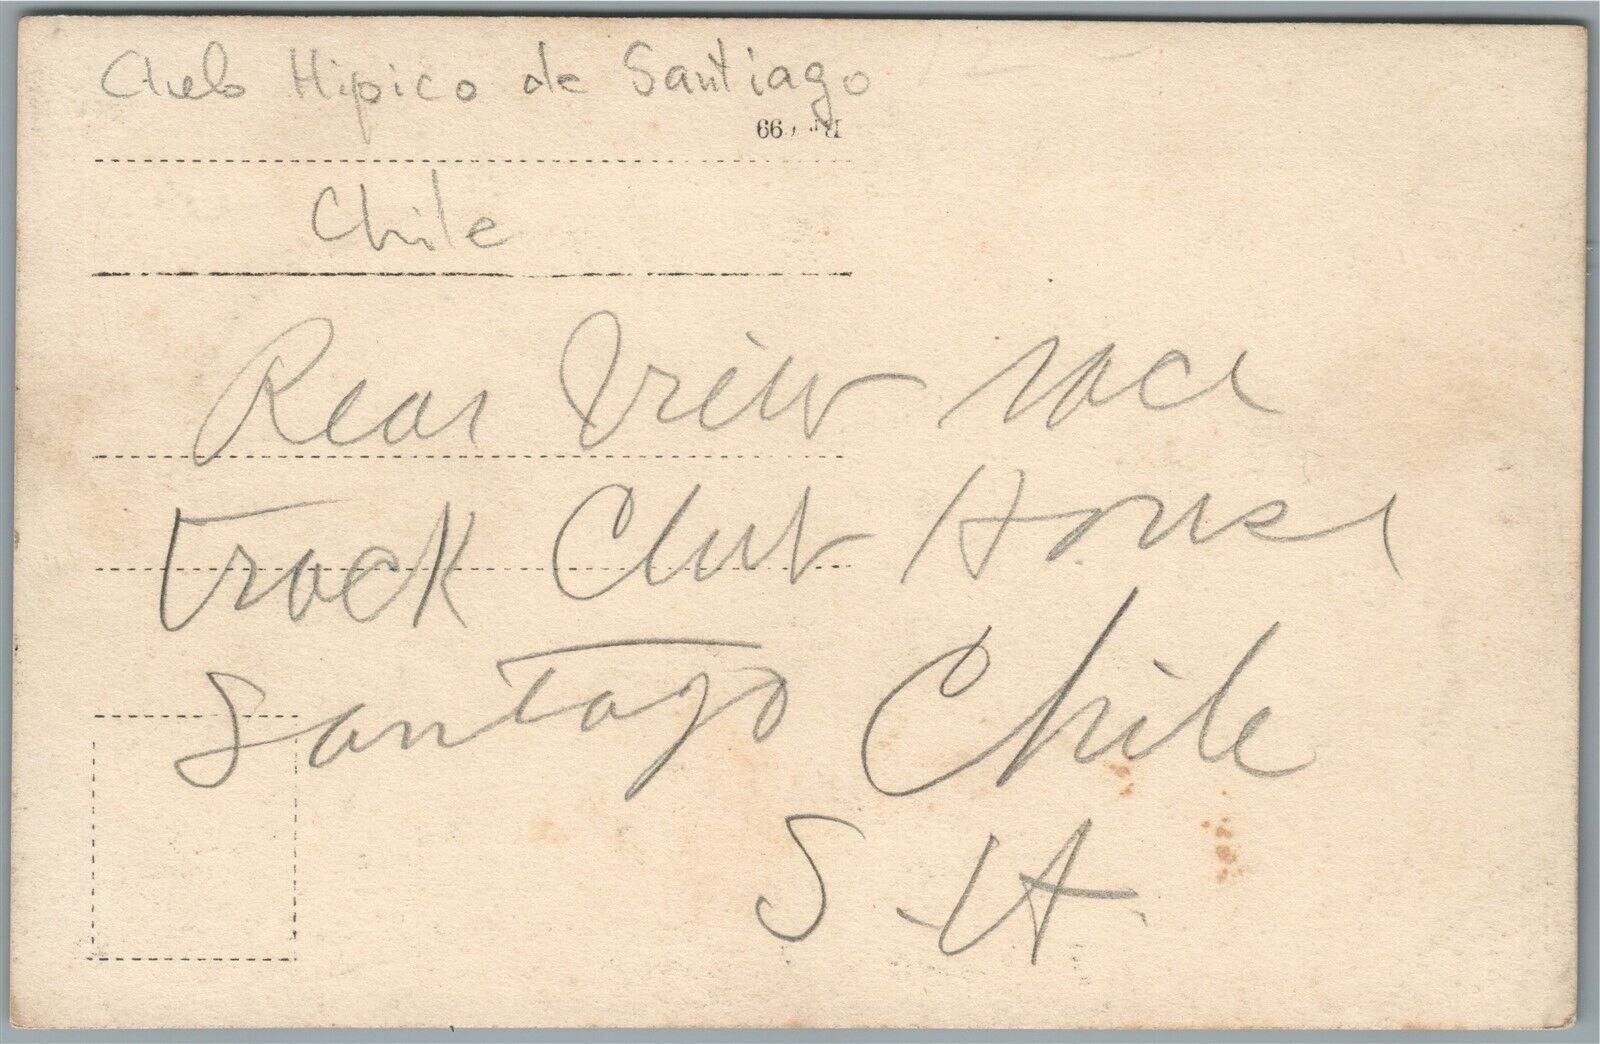 Club Hipico de Santiago
Chile
Rear View race
Track Club House
Santago Chile
S. A.